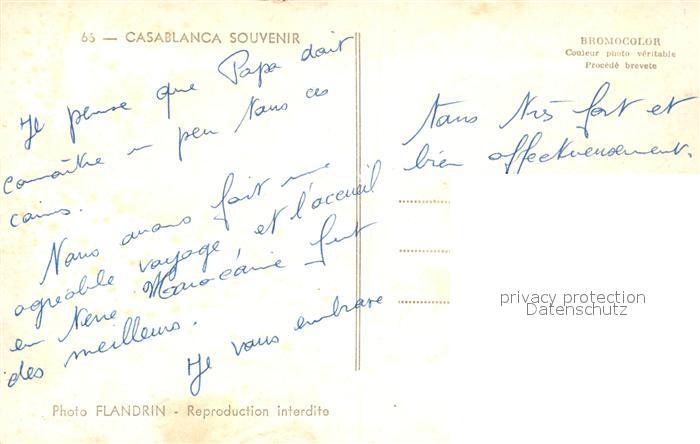 66 — CASABLANCA SOUVENIR
BROMOCOLOR
Couleur photo véritable
Procédé breveté
Je pense que Papa doit
connaître un peu tous ces
coins.
Nous avons fait un
agréable voyage, et l'accueil
en Terre Marocaine fut
des meilleurs.
Je vous embrasse
tous très fort et
bien affectueusement.
privacy protection
Datenschutz
Photo FLANDRIN - Reproduction interdite